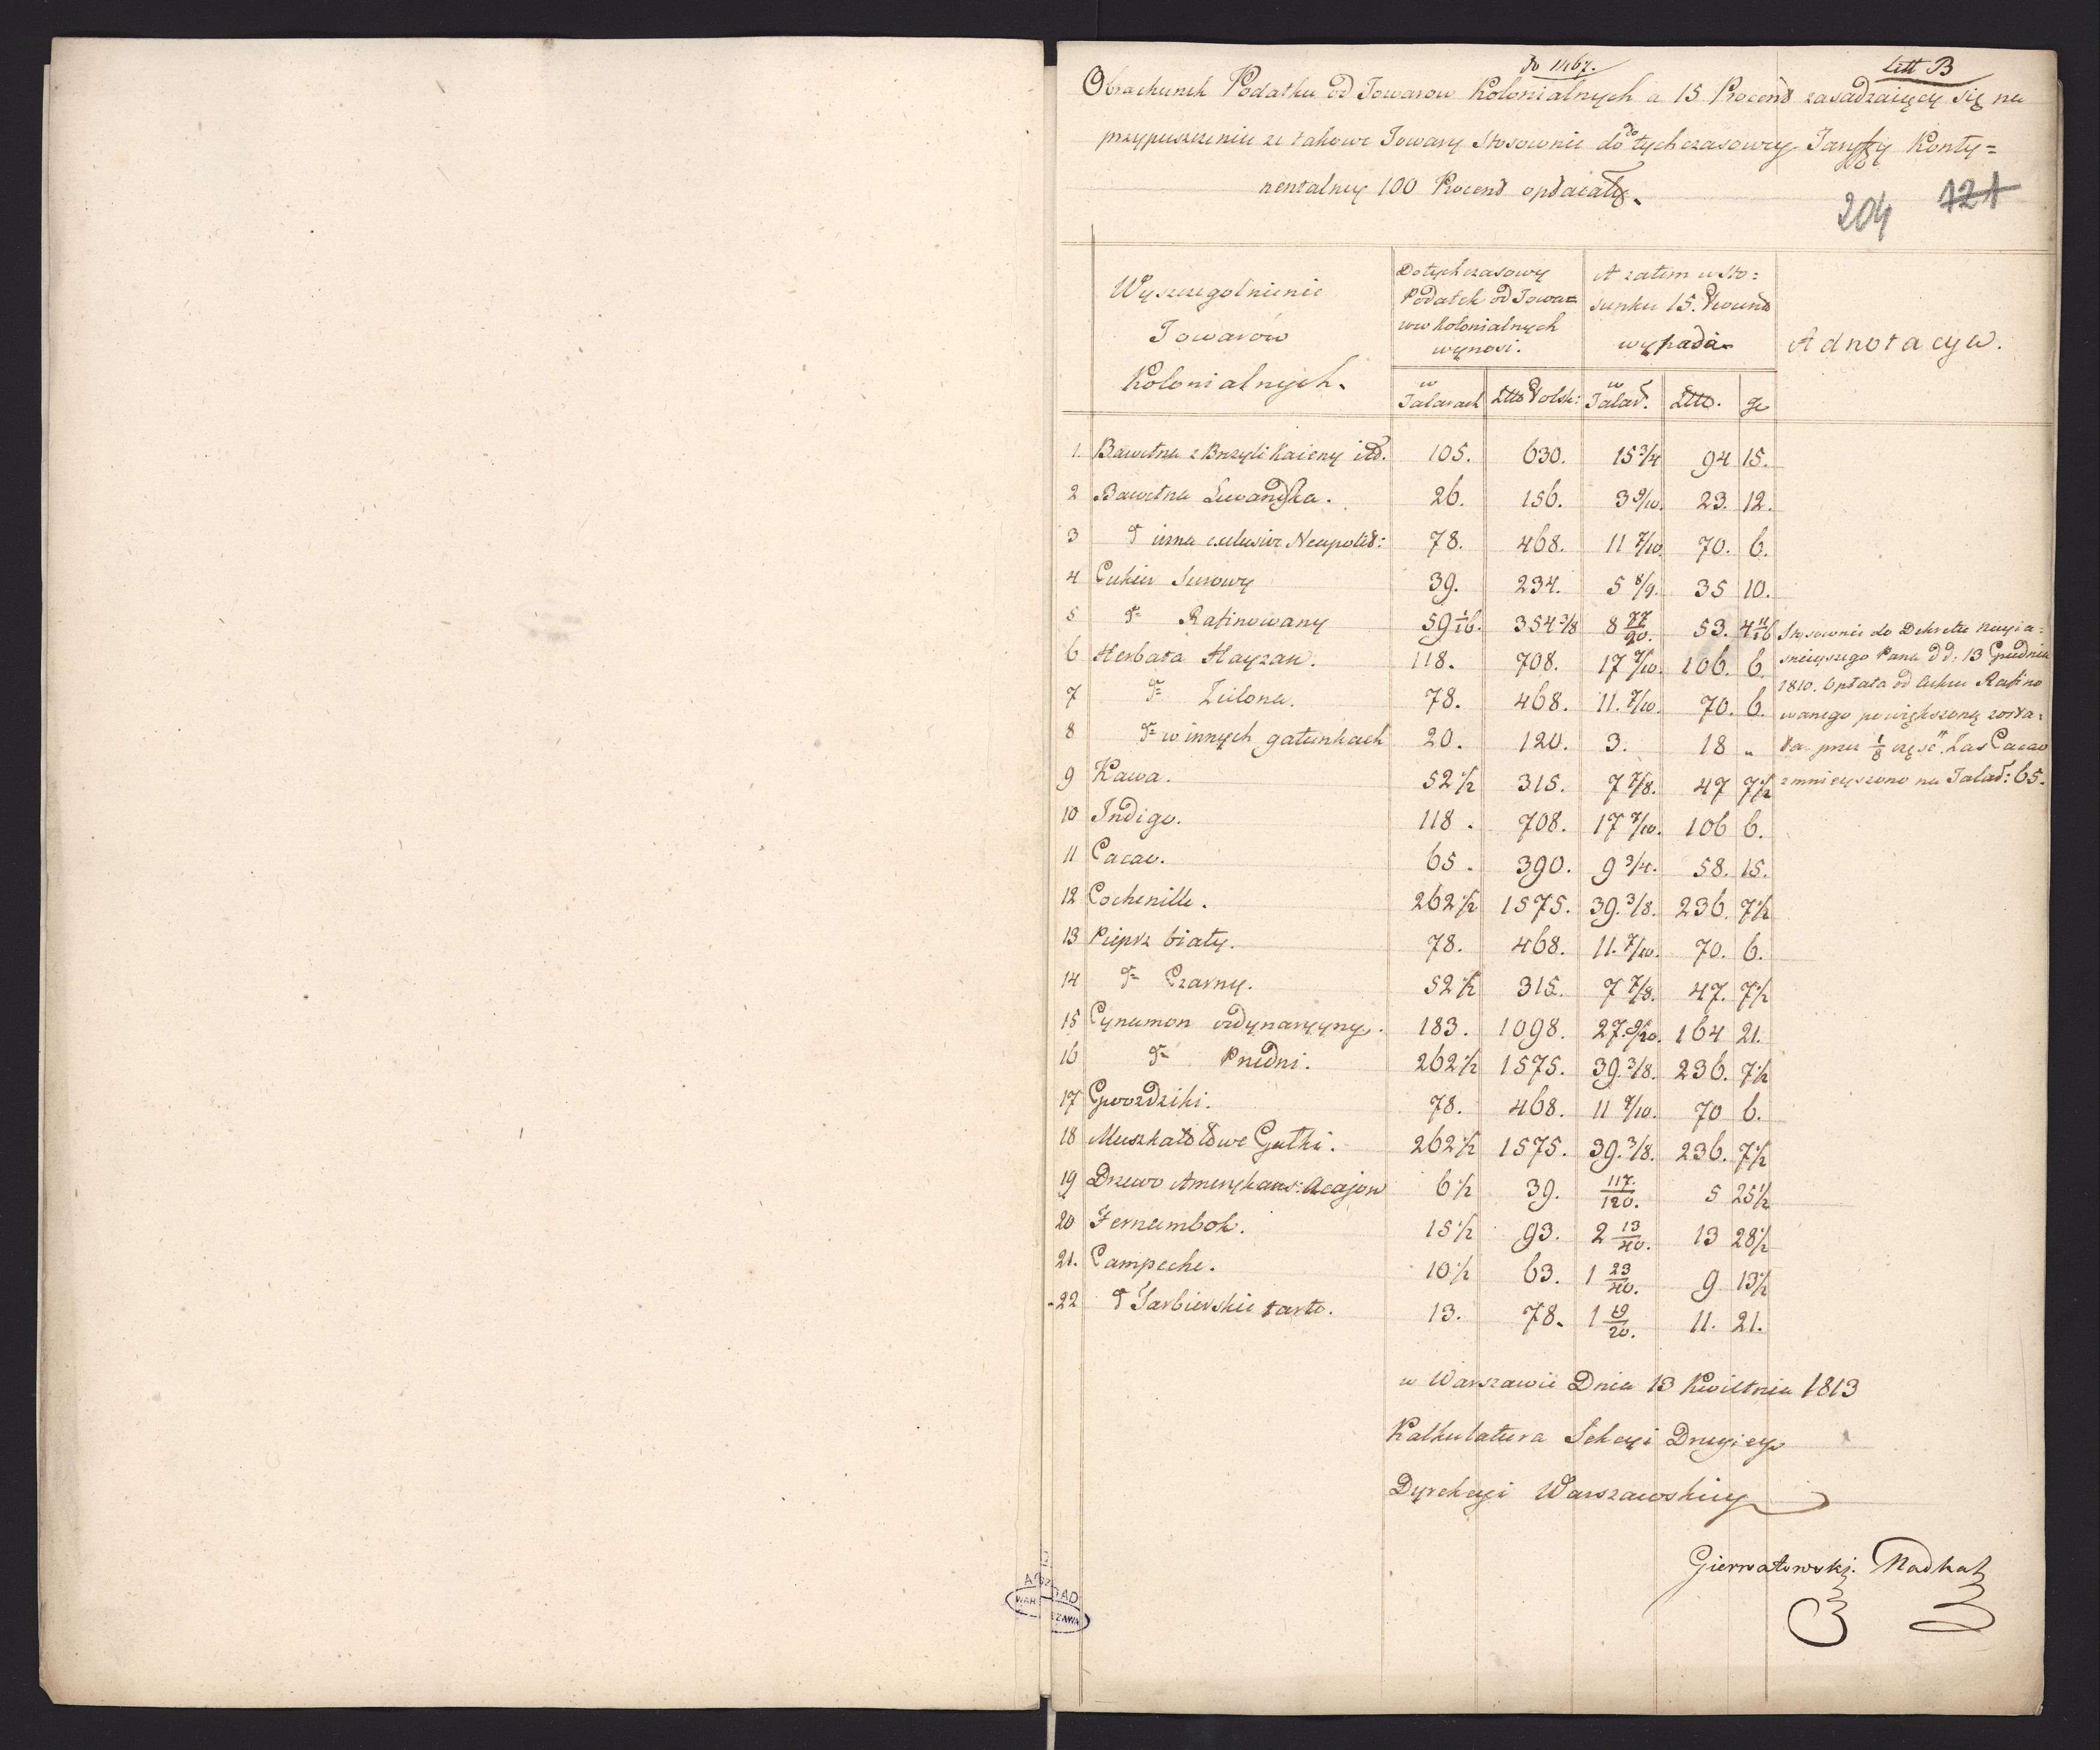 do 1467.
Litt B
Obrachunek Podatku od Towarow Kolonialnych a 15 Procend zasadzaiący się na
przypuszczeniu ze takowe Towary stosownie do dotychczasowey Taryffy Konty=
nentalney 100 Procend opłacały.
204 121
Wyszczegolnienie
Towarów
Kolonialnych.
Dotychczasowy
Podatek od Towa=
row Kolonialnych
wynosi.
A zatem w sto:
sunku 15. Procend
wypada
Adnotacya.
w Talarach
Złto Polsk:
w Talar.
Złto.
gr
1. Bawełna z Brezyli Kaieny itd. 105. 630. 15 3/4 94 15.
2 Bawełna Lewandska. 26. 156. 3 9/10. 23. 12.
3 d inna exclusive Neapolit: 78. 468. 11 7/10 70. 6.
4 Cukier Surowy 39. 234. 5 8/9. 35 10.
5 d= Rafinowany 59 1/16. 354 3/8 8 77/90. 53. 4 11/16
6 Herbata Hayzan. 118. 708. 17 7/10. 106. 6.
7 d= Zielona. 78. 468. 11. 7/10. 70. 6.
8 d= w innych gatunkach 20. 120. 3. 18 "
9 Kawa. 52 1/2 315. 7 7/8. 47 7 1/2
10 Indigo. 118. 708. 17 7/10. 106 6.
11 Cacao. 65. 390. 9 3/4. 58. 15.
12 Cochenille. 262 1/2 1575. 39. 3/8. 236. 7 1/2
13 Pieprz biały. 78. 468. 11. 7/10. 70. 6.
14 d= Czarny. 52 1/2 315. 7 7/8. 47. 7 1/2
15 Cynamon ordynaryyny. 183. 1098. 27. 9/20. 164 21.
16 d= Przedni. 262 1/2 1575. 39. 3/8. 236. 7 1/2
17 Gwozdziki. 78. 468. 11 7/10. 70 6.
18 Muszkatołowe Gałki. 262 1/2 1575. 39. 3/8. 236. 7 1/2
19 Drzewo Amerykans: Acajow 6 1/2 39. 117/120. 5 25 1/2
20 Fernambok. 15 1/2 93. 2 13/40. 13 28 1/2
21. Campeche. 10 1/2 63. 1 23/40. 9 13 1/2
22 d Farbierskie tarte. 13. 78. 1 19/20. 11. 21.
Stosownie do Dekretu Nayia=
śnieyszego Pana dd: 13 Grudnia
1810. Opłata od Cukru Rafino
wanego powiększoną zosta=
ła przez 1/8 część". Zas Cacao
zmnieyszono na Talar: 65.
w Warszawie Dnia 13 Kwietnia 1813
Kalkulatura Sekcyi Drugiey
Dyrekcyi Warszawskiey
Gierwatowski. Nadkal